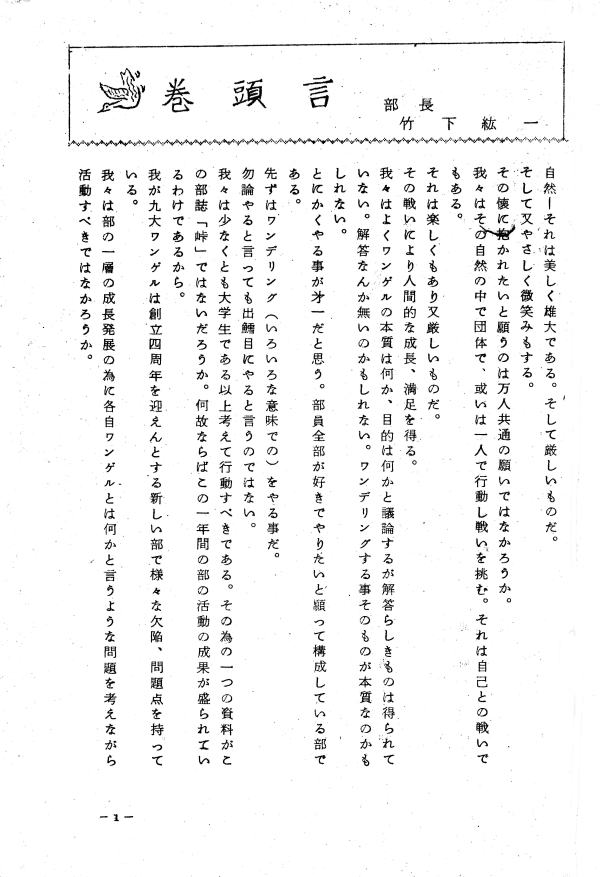 巻頭言
部長
竹下紘一
自然ーそれは美しく雄大である。そして厳しいものだ。
そして又やさしく微笑みもする。
その懐に抱かれたいと願うのは万人共通の願いではなかろうか。
我々はその自然の中で団体で、或いは一人で行動し戦いを挑む。それは自己との戦いで
もある。
それは楽しくもあり又厳しいものだ。
その戦いにより人間的な成長、満足を得る。
我々はよくワンゲルの本質は何か、目的は何かと議論するが解答らしきものは得られて
いない。解答なんか無いのかもしれない。ワンデリングする事そのものが本質なのかも
しれない。
とにかくやる事が才一だと思う。部員全部が好きでやりたいと願って構成している部で
ある。
先ずはワンデリング（いろいろな意味での）をやる事だ。
勿論やると言っても出鱈目にやると言うのではない。
我々は少なくとも大学生である以上考えて行動すべきである。その為の一つの資料がこ
の部誌「峠」ではないだろうか。何故ならばこの一年間の部の活動の成果が盛られてい
るわけであるから。
我が九大ワンゲルは創立四周年を迎えんとする新しい部で様々な欠陥、問題点を持って
いる。
我々は部の一層の成長発展の為に各自ワンゲルとは何かと言うような問題を考えながら
活動すべきではなかろうか。
－1－